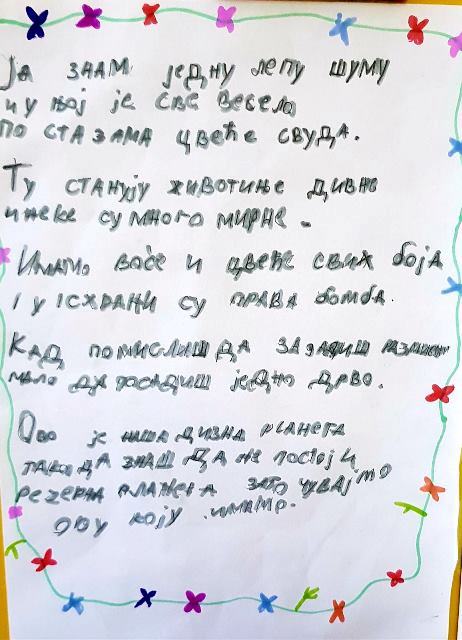 Ја ЗНАМ ЈЕДНУ ЛЕПУ ШУМУ
и у њој је све весело
ПО СТАЗАМА ЦВЕЋЕ СВУДА.
Ту станују животиње дивне
и неке су много мирне.
Имамо воће и цвеће свих боја
I у ISХРАНИ СУ ПРАВА бомба.
КАД ПОМИСЛИШ ДА ЗАЗАДИШ
мало да посадиш једно дрво.
Ово је наша дизна планета
тако да знаш да не постоји
резерна планета зато чувајмо
ову коју имамо.